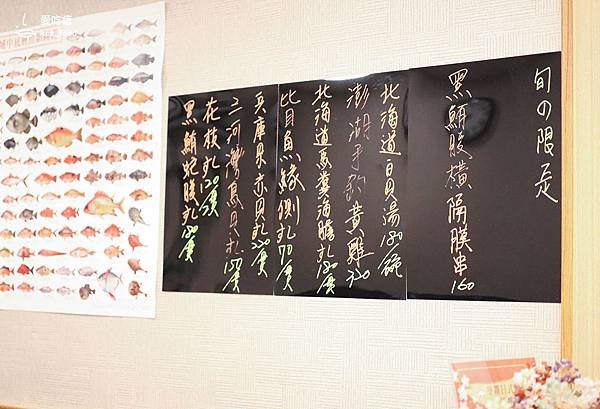 旬の限定
黑鮪腹橫隔膜串 160
北海道白貝湯 180碗
澎湖手釣黃雞 220
北海道馬糞海膽丸 180貫
比目魚緣側丸 70貫
兵庫貝赤貝丸 220貫
三河灣鳥貝丸 150貫
花枝丸 120貫
黑鮪蛇腹丸 180貫
愛吃喵